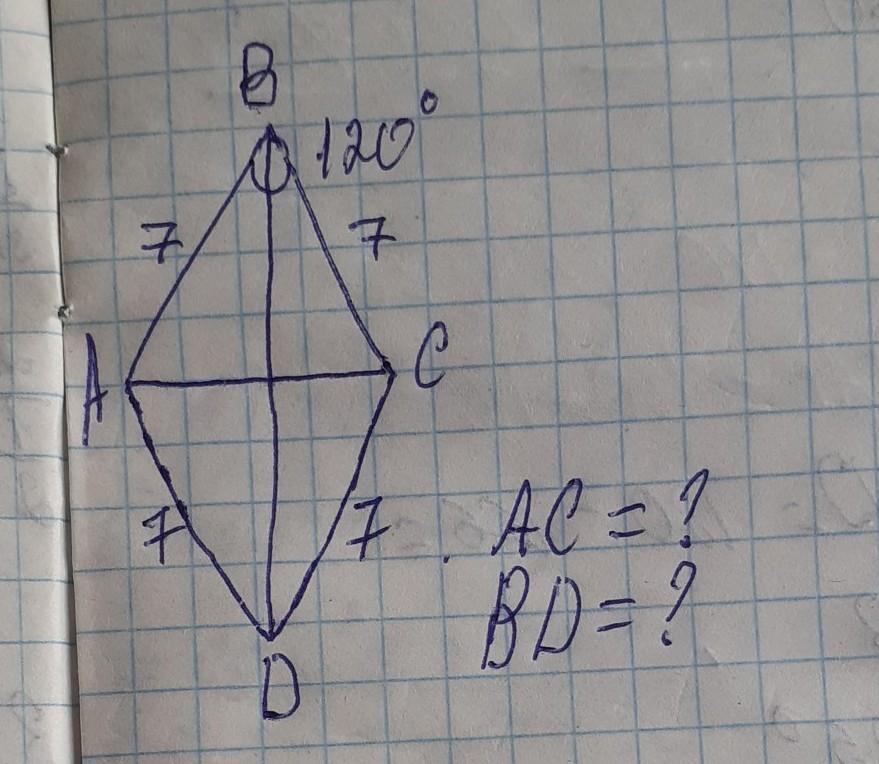 B
120°
7 7
A C
7 7
AC = ?
BD = ?
D